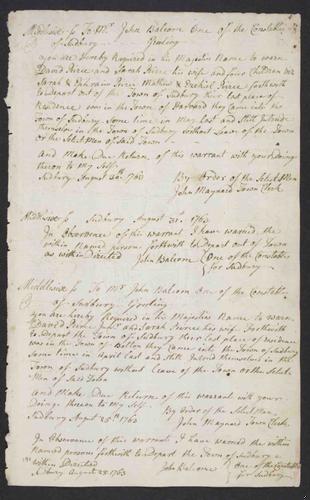 Middlesex ss To Mr John Balcom One of the Constables
of Sudbury Greeting
you are hereby Required in his Majesties Name to warn
David Peirce and Sarah Peirce his wife and four Children viz
Sarah & Ephraim Peirce Mathew & Ezekiel Peirce forthwith
to Depart out of the Town of Sudbury their last place of
Residence was in the Town of Harvard they Came into the
Town of Sudbury Some time in May last and Still Intrude
themselves in the Town of Sudbury without Leave of the Town
or the Select Men of Said Town
And Make Due Return of the warrant with your Doings
thereon to my Self
Sudbury August 1763 By Order of the Select Men
John Maynard Town Clerk
Middlesex ss Sudbury August 31: 1763
In Observance of this warrant I have warned the
within Named persons forthwith to Depart out of Town
as within Directed John Balcom One of the Constables
for Sudbury
Middlesex ss To Mr John Balcom One of the Constables
of Sudbury Greeting
you are hereby Required in his Majesties Name to warn
David Peirce and Sarah Peirce his wife forthwith
to Depart the Town of Sudbury their last place of residence
was in the Town of Bolton they Came into the Town of Sudbury
Some time in last and Still Intrude themselves in the
Town of Sudbury without Leave of the Town or the Select
Men of Said Town
And Make Due Return of this warrant with your
Doings thereon to my Self
Sudbury August 25th 1763 By Order of the Select Men
John Maynard Town Clerk
In Observance of this warrant I have warned the within
Named persons forthwith to Depart the Town of Sudbury
as within Directed John Balcom One of the Constables
Sudbury August 25 1763 for Sudbury